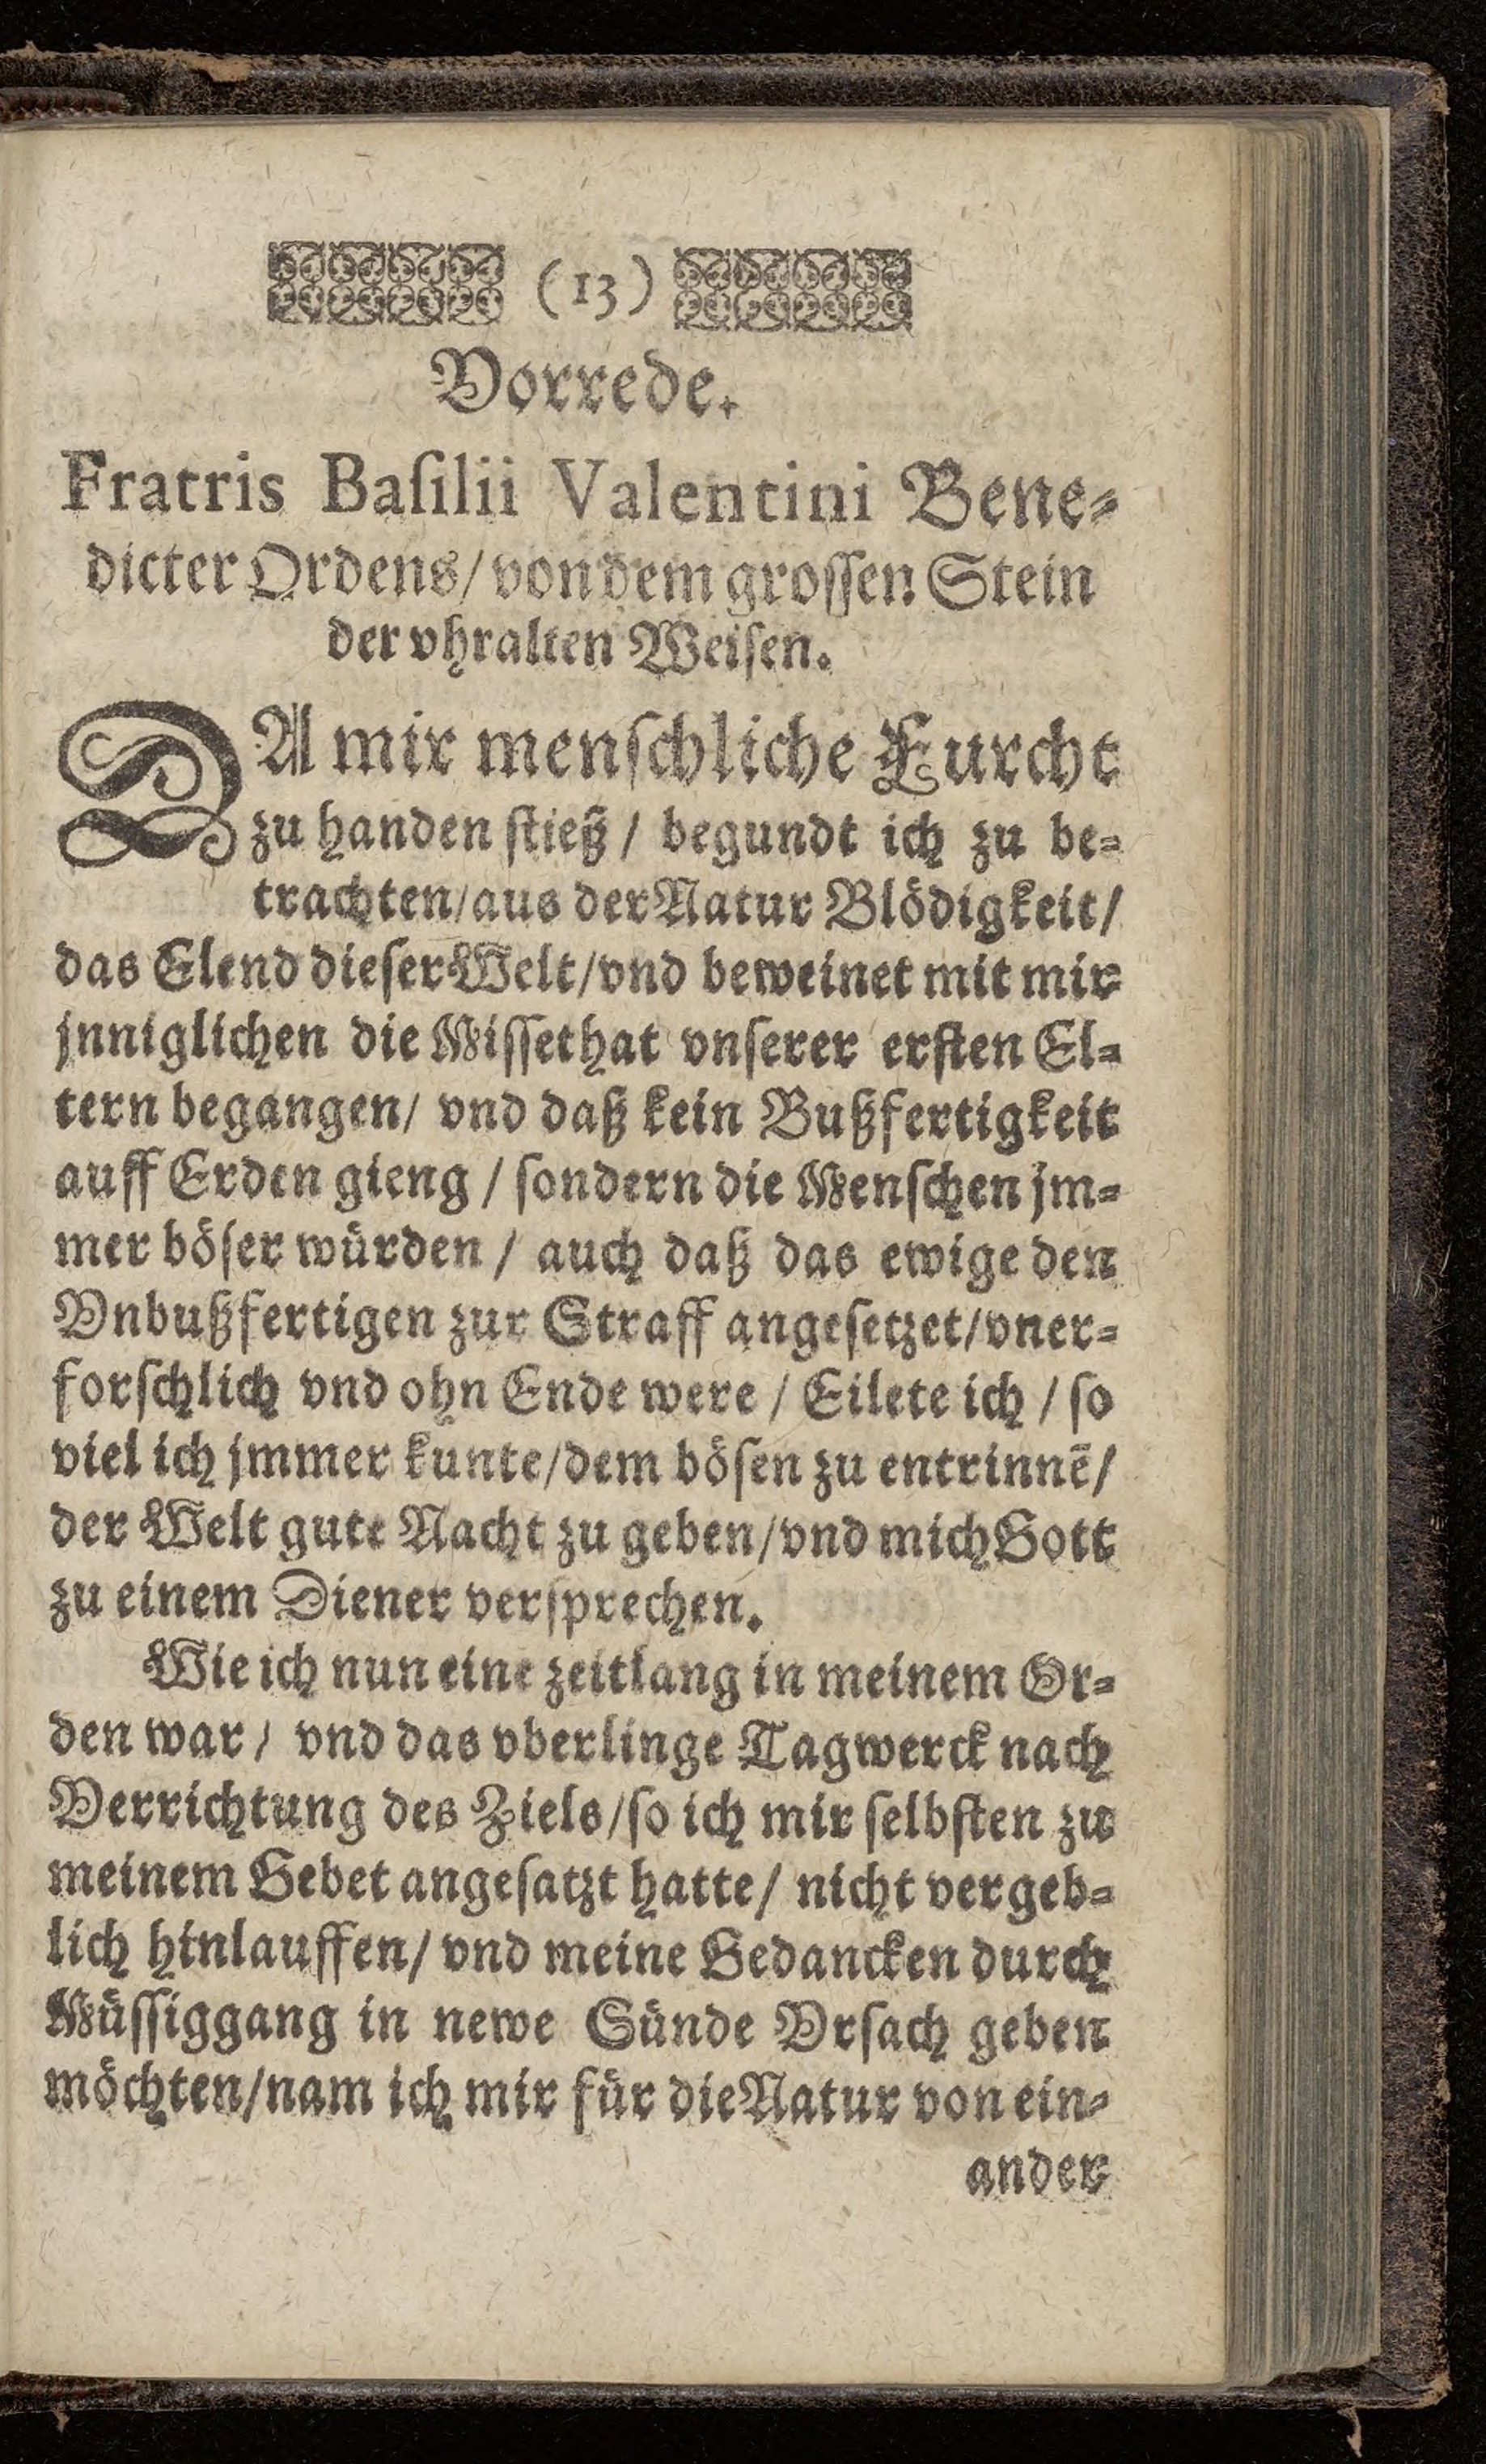 (13)
Vorrede.
Fratris Baſilii Valentini Bene⸗
dicter Ordens/ von dem groſſen Stein
der vhralten Weiſen.
DA mir menſchliche Furcht
zu handen ſtieß / begundt ich zu be⸗
trachten/ aus der Natur Blödigkeit/
das Elend dieſer Welt/vnd beweinet mit mir
jnniglichen die Miſſethat vnſerer erſten El⸗
tern begangen/ vnd daß kein Bußfertigkeit
auff Erden gieng / ſondern die Menſchen jm⸗
mer böſer würden / auch daß das ewige den
Vnbußfertigen zur Straff angeſetzet/vner⸗
forſchlich vnd ohn Ende were / Eilete ich / ſo
viel ich jmmer kunte/dem böſen zu entrinnē/
der Welt gute Nacht zu geben/vnd mich Gott
zu einem Diener verſprechen.
Wie ich nun eine zeitlang in meinem Or⸗
den war / vnd das vberlinge Tagwerck nach
Verrichtung des Ziels/ſo ich mir ſelbſten zu
meinem Gebet angeſatzt hatte/ nicht vergeb⸗
lich hinlauffen/ vnd meine Gedancken durch
Müſſiggang in newe Sünde Vrſach geben
möchten/nam ich mir für die Natur von ein⸗
ander